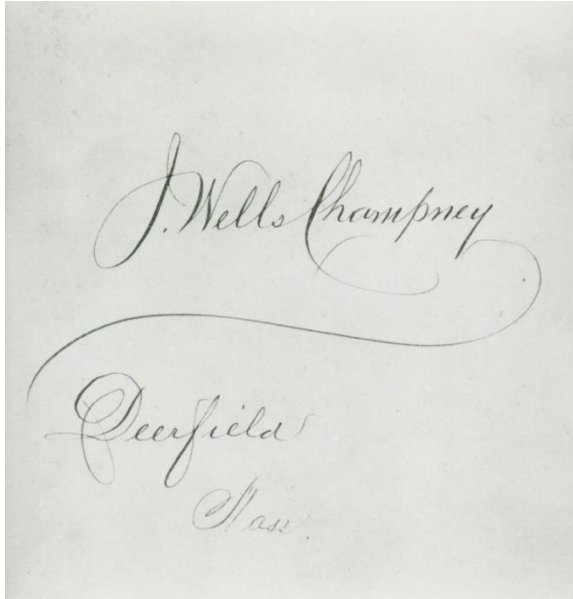 J. Wells Champney
Deerfield
Mass.